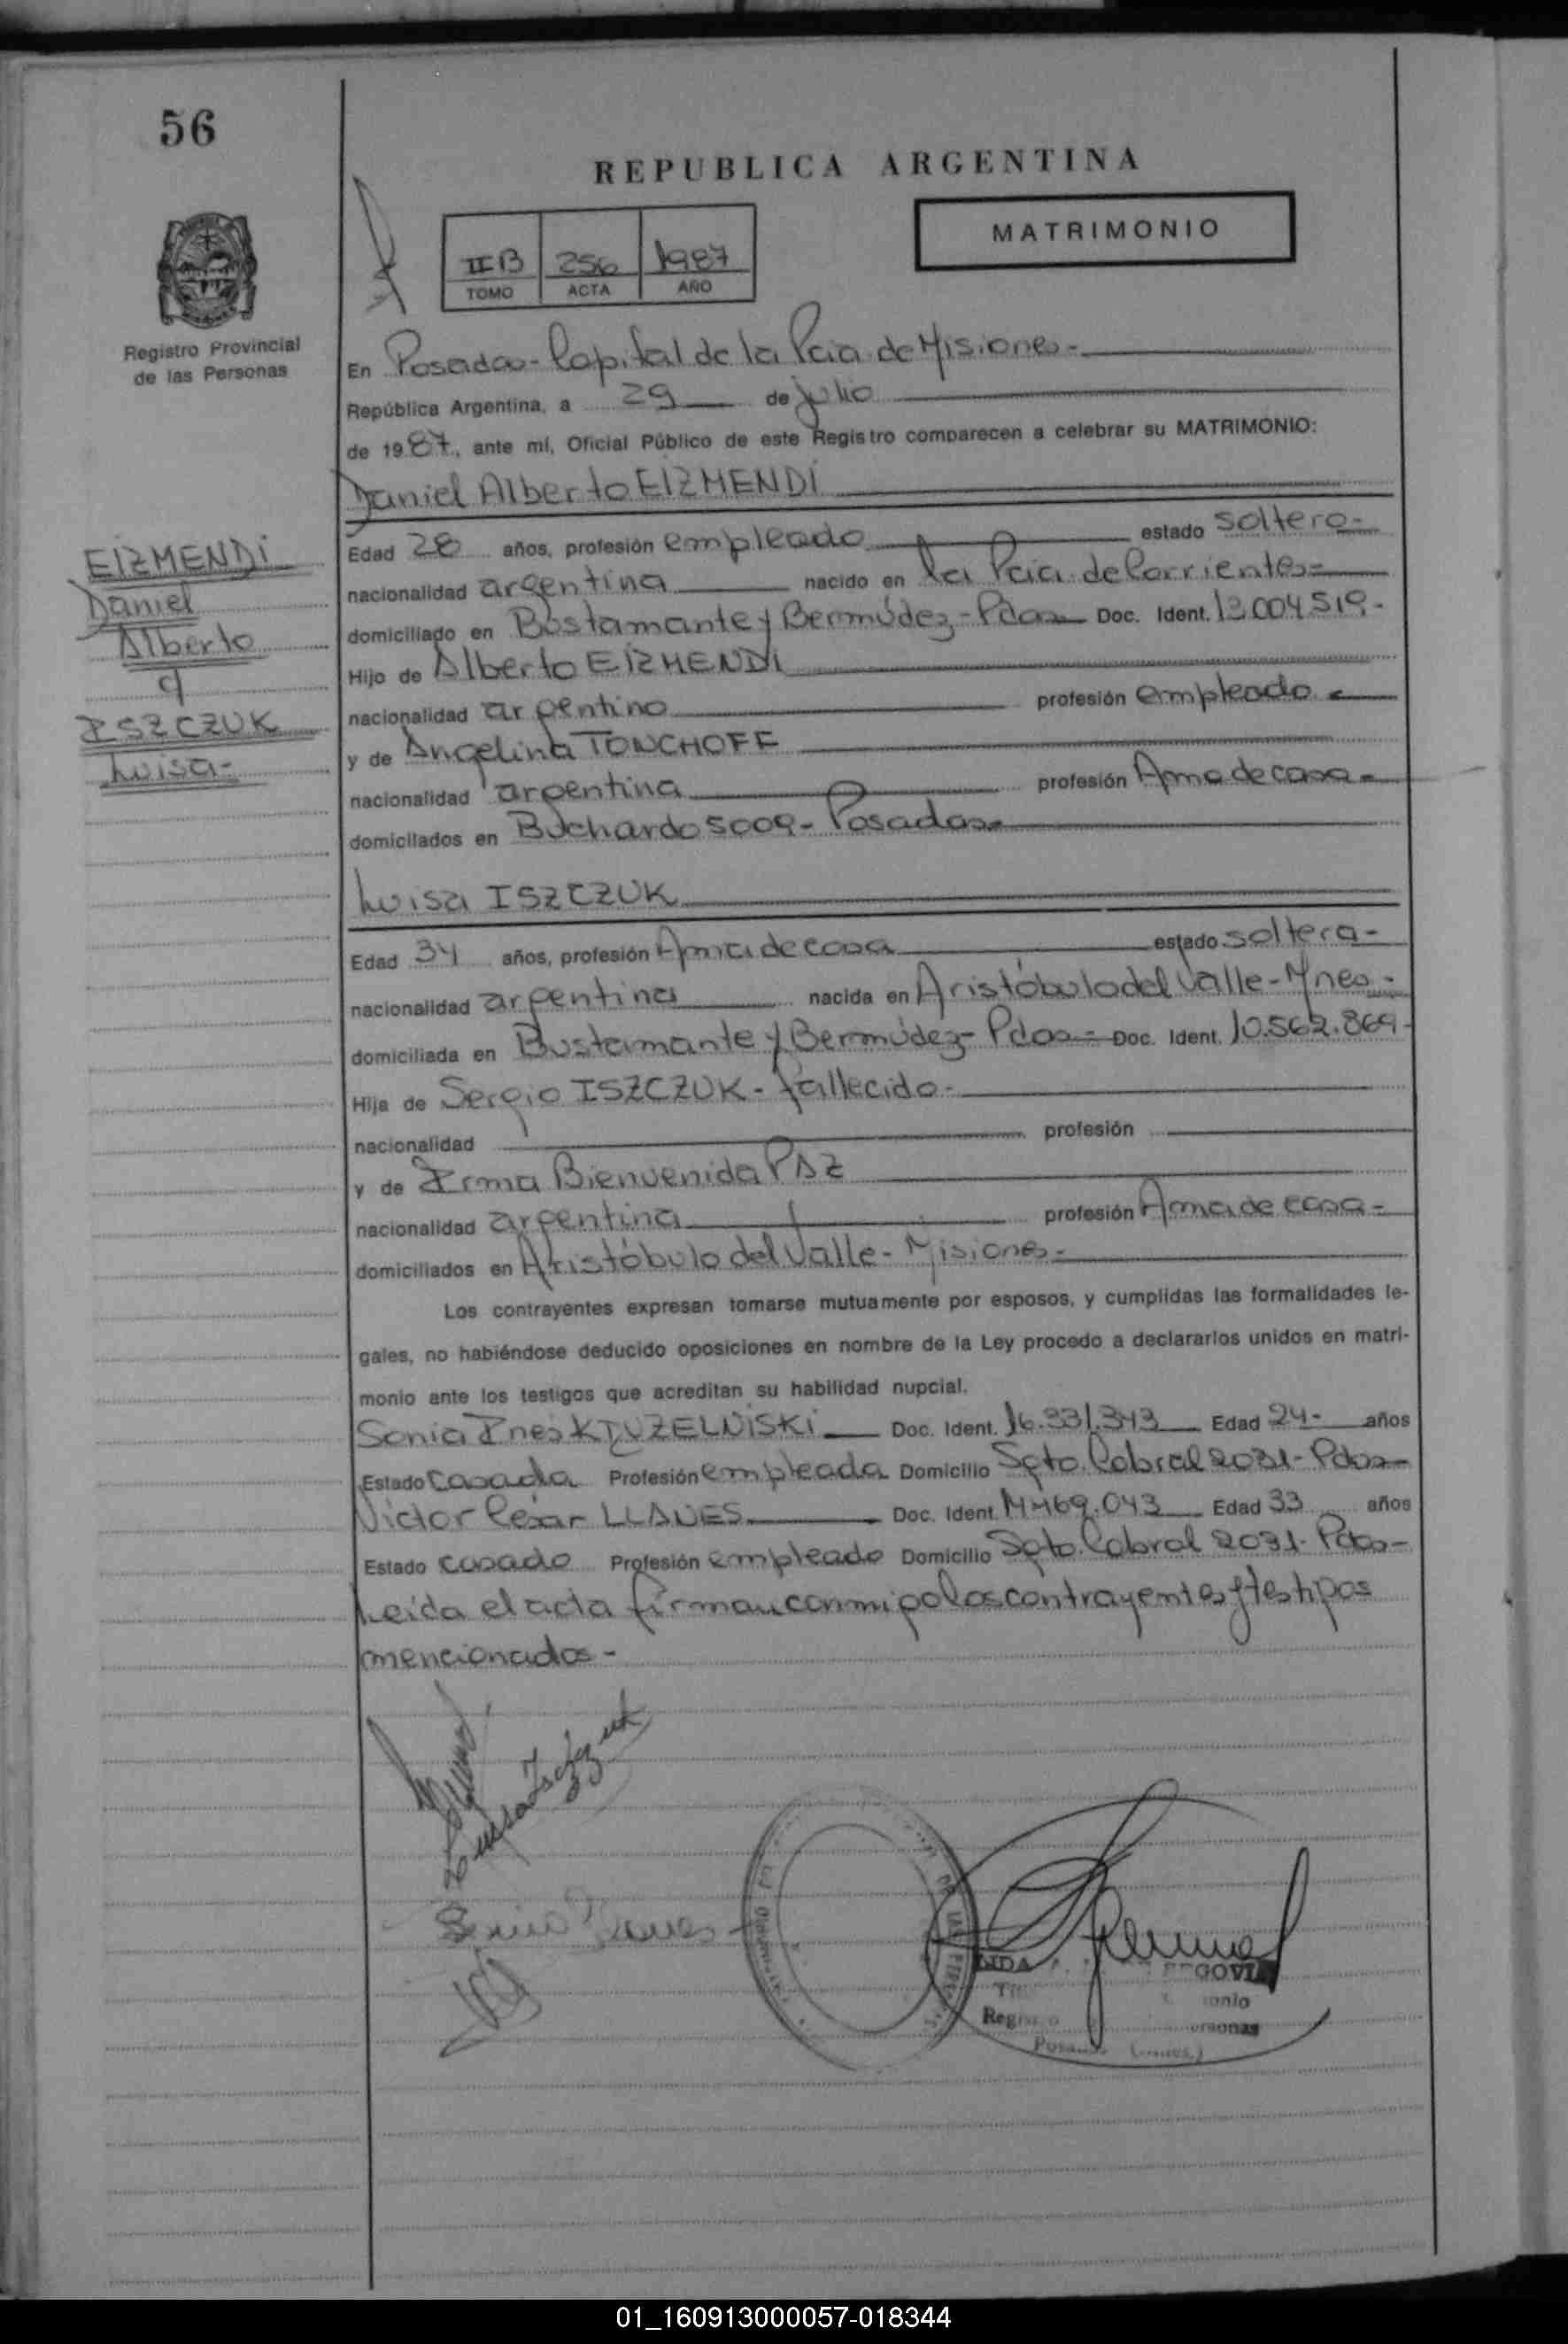 56
REPUBLICA ARGENTINA
MATRIMONIO
II B 256 1987
TOMO ACTA AÑO
Registro Provincial
de las Personas
En Posadas - Capital de la Pcia. de Misiones -
República Argentina, a 29 de julio
de 1987, ante mí, Oficial Público de este Registro comparecen a celebrar su MATRIMONIO:
Daniel Alberto EIZMENDI
EIZMENDI
Daniel
Alberto
q
ISZCZUK
Luisa -
Edad 28 años, profesión empleado estado soltero -
nacionalidad argentina nacido en la Pcia. de Corrientes -
domiciliado en Bustamante y Bermúdez - Pdas - Doc. Ident. 13.004.519 -
Hijo de Alberto EIZMENDI
nacionalidad argentino profesión empleado -
y de Angelina TONCHOFF
nacionalidad argentina profesión Ama de casa -
domiciliados en Buchardo 5009 - Posadas -
Luisa ISZCZUK
Edad 34 años, profesión Ama de casa estado soltera -
nacionalidad argentina nacida en Aristóbulo del Valle - Mnes -
domiciliada en Bustamante y Bermúdez - Pdas - Doc. Ident. 10.562.869 -
Hija de Sergio ISZCZUK - fallecido -
nacionalidad profesión
y de Irma Bienvenida PAZ
nacionalidad argentina profesión Ama de casa -
domiciliados en Aristóbulo del Valle - Misiones -
Los contrayentes expresan tomarse mutuamente por esposos, y cumplidas las formalidades le-
gales, no habiéndose deducido oposiciones en nombre de la Ley procedo a declararlos unidos en matri-
monio ante los testigos que acreditan su habilidad nupcial.
Sonia Ines Doc. Ident. 16.331.343 Edad 24 - años
Estado casada Profesión empleada Domicilio Sgto. Cabral 2031 - Pdas -
Victor César LLANES Doc. Ident. Edad 33 años
Estado casado Profesión empleado Domicilio Sgto. Cabral 2031 - Pdas -
Leída el acta firman conmigo los contrayentes y testigos
mencionados -
Luisa Iszczuk
01_160913000057-018344